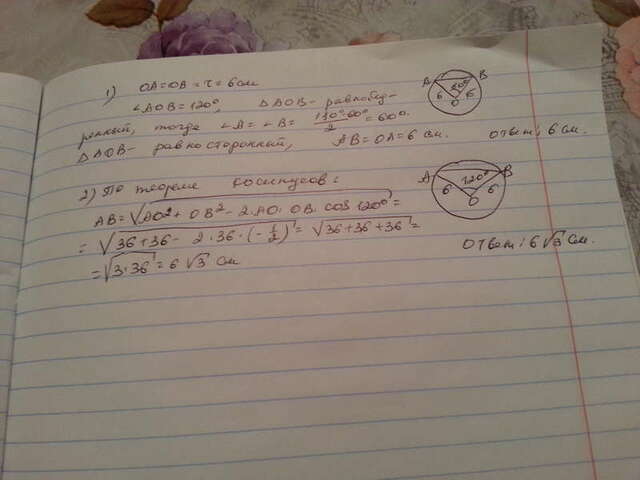 1) OA=OB=r=6см
∠AOB=120°, △AOB- равнобед-
ренный, тогда ∠A=∠B= (180°-60°)/2 =60°.
△AOB- равносторонний, AB=OA=6 см. Ответ: 6 см.
A B
6 6
O
2) По теореме косинусов:
AB=√(AO²+OB²-2·AO·OB·cos 120°)=
=√(36+36-2·36·(-1/2))=√(36+36+36)=
=√(3·36)=6√3 см
A B
6 120° 6
O
Ответ: 6√3 см.